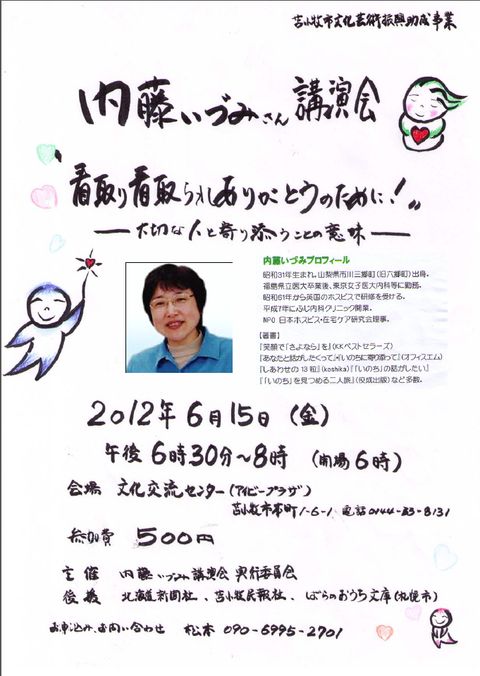 苫小牧市文化芸術振興助成事業
内藤いづみさん講演会
"看取り看取られありがとうのために!"
― 大切な人と寄り添うことの意味 ―
内藤いづみプロフィール
昭和31年生まれ。山梨県市川三郷町(旧六郷町)出身。
福島県立医大卒業後、東京女子医大内科等に勤務。
昭和61年から英国のホスピスで研修を受ける。
平成7年にふじ内科クリニック開業。
NPO 日本ホスピス・在宅ケア研究会理事。
【著書】
『笑顔で「さよなら」を』(KKベストセラーズ)
『あなたと話がしたくって』・『いのちに寄り添って』(オフィスエム)
『しあわせの13粒』(koshika)『「いのち」の話がしたい』
『「いのち」を見つめる二人旅』(佼成出版)など多数。
2012年6月15日(金)
午後6時30分~8時 (開場6時)
会場 文化交流センター(アイビープラザ)
苫小牧市本町1-6-1 電話0144-33-8131
参加費 500円
主催 内藤いづみ講演会実行委員会
後援 北海道新聞社、苫小牧民報社、ばらのおうち文庫(札幌市)
お申込み、お問い合わせ 松本 090-6995-2701